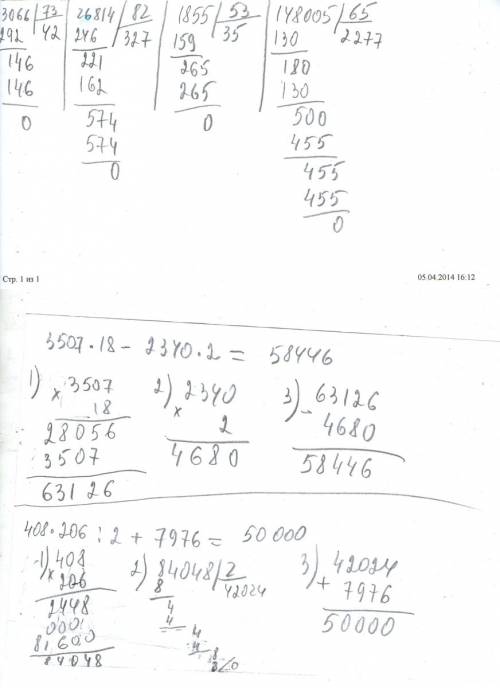 3066 | 73    26814 | 82    1855 | 53    148005 | 65
292 | 42    246 | 327    159 | 35    130 | 2277
146    221    265    180
146    162    265    130
0    574    0    500
574    455
0    455
455
0
Стр. 1 из 1    05.04.2014 16:12
3507·18 - 2340·2 = 58446
1) × 3507    2) × 2340    3) - 63126
18    2    4680
28056    4680    58446
3507
63126
408·206 : 2 + 7976 = 50 000
1) × 408    2) 84048 | 2    3) + 42024
206    8 | 42024    7976
2448    4    50000
000    4
81600    4
84048    4
8
8
0